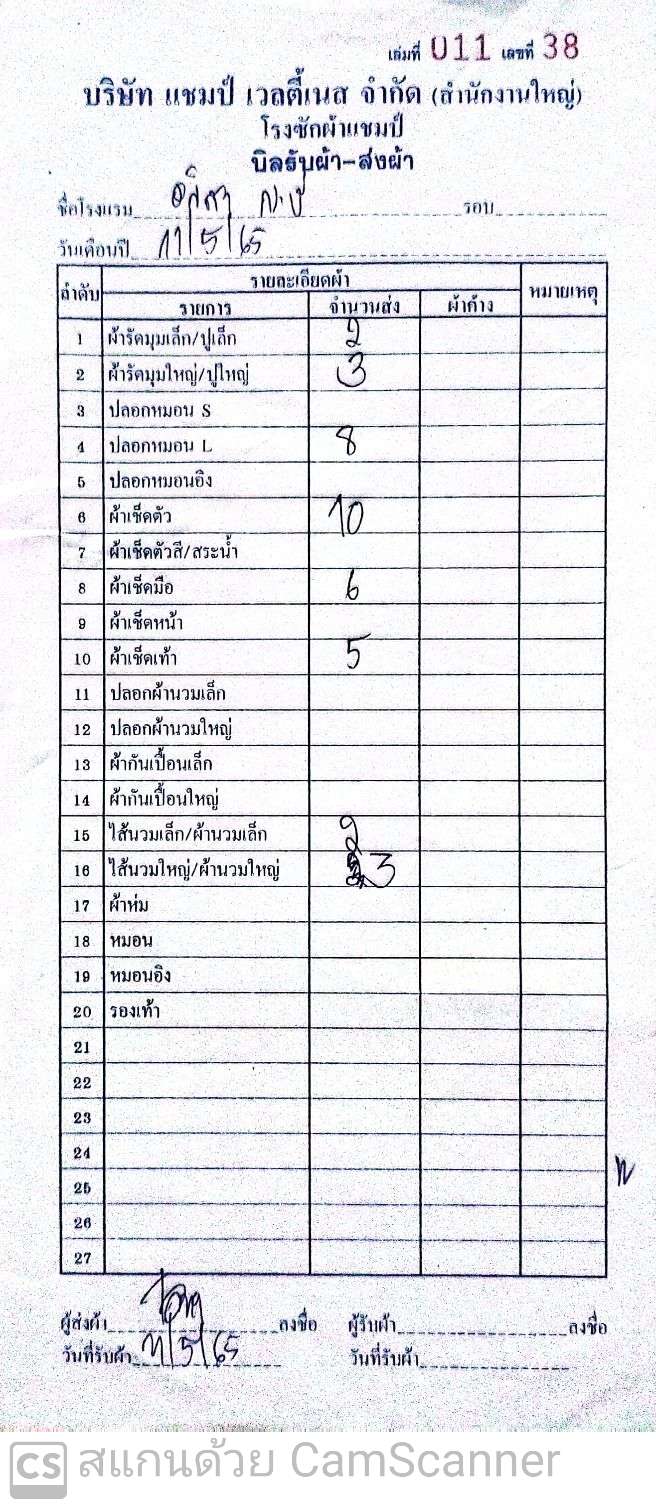 เล่มที่ 011 เลขที่ 38
บริษัท แชมป์ เวลตี้เนส จำกัด (สำนักงานใหญ่)
โรงซักผ้าแชมป์
บิลรับผ้า-ส่งผ้า
ชื่อโรงแรม รอบ
วันเดือนปี 11/5/65
ลำดับ รายละเอียดผ้า หมายเหตุ
รายการ จำนวนส่ง ผ้าค้าง
1 ผ้ารัดมุมเล็ก/ปูเล็ก 2
2 ผ้ารัดมุมใหญ่/ปูใหญ่ 3
3 ปลอกหมอน S
4 ปลอกหมอน L 8
5 ปลอกหมอนอิง
6 ผ้าเช็ดตัว 10
7 ผ้าเช็ดตัวสี/สระน้ำ
8 ผ้าเช็ดมือ 6
9 ผ้าเช็ดหน้า
10 ผ้าเช็ดเท้า 5
11 ปลอกผ้านวมเล็ก
12 ปลอกผ้านวมใหญ่
13 ผ้ากันเปื้อนเล็ก
14 ผ้ากันเปื้อนใหญ่
15 ไส้นวมเล็ก/ผ้านวมเล็ก 2
16 ไส้นวมใหญ่/ผ้านวมใหญ่ 3
17 ผ้าห่ม
18 หมอน
19 หมอนอิง
20 รองเท้า
21
22
23
24
25
26
27
ผู้ส่งผ้า ลงชื่อ ผู้รับผ้า ลงชื่อ
วันที่รับผ้า 11/5/65 วันที่รับผ้า
CS สแกนด้วย CamScanner